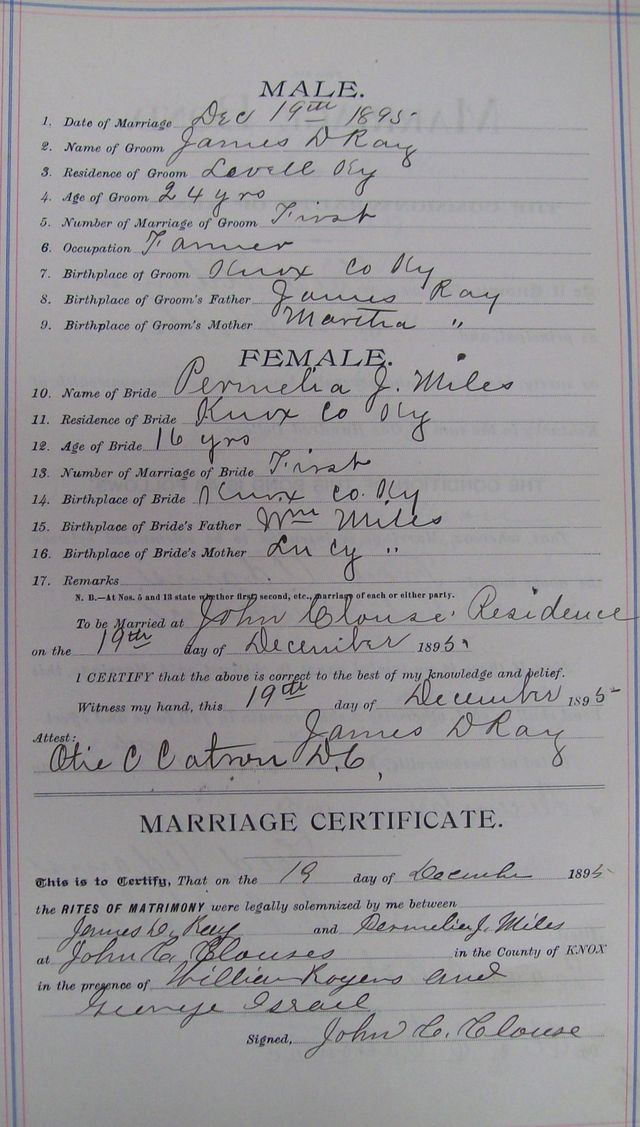 MALE.
1. Date of Marriage Dec 19th 1895
2. Name of Groom James D Ray
3. Residence of Groom Lovell Ky
4. Age of Groom 24 yrs
5. Number of Marriage of Groom First
6. Occupation Farmer
7. Birthplace of Groom Knox Co Ky
8. Birthplace of Groom's Father James Ray
9. Birthplace of Groom's Mother Martha "
FEMALE.
10. Name of Bride Permelia J. Miles
11. Residence of Bride Knox Co Ky
12. Age of Bride 16 yrs
13. Number of Marriage of Bride First
14. Birthplace of Bride Knox Co. Ky
15. Birthplace of Bride's Father Wm Miles
16. Birthplace of Bride's Mother Lucy "
17. Remarks
N. B.—At Nos. 5 and 13 state whether first, second, etc., marriage of each or either party.
To be Married at John Clouse Residence
on the 19th day of December 1895.
I CERTIFY that the above is correct to the best of my knowledge and belief.
Witness my hand, this 19th day of December 1895
James D Ray
Attest:
Otie C Catron D.C,
MARRIAGE CERTIFICATE.
This is to Certify, That on the 19 day of December 1895
the RITES OF MATRIMONY were legally solemnized by me between
James D. Ray and Permelia J. Miles
at John C Clouses in the County of KNOX
in the presence of William Rogers and
George Israel
Signed, John C. Clouse